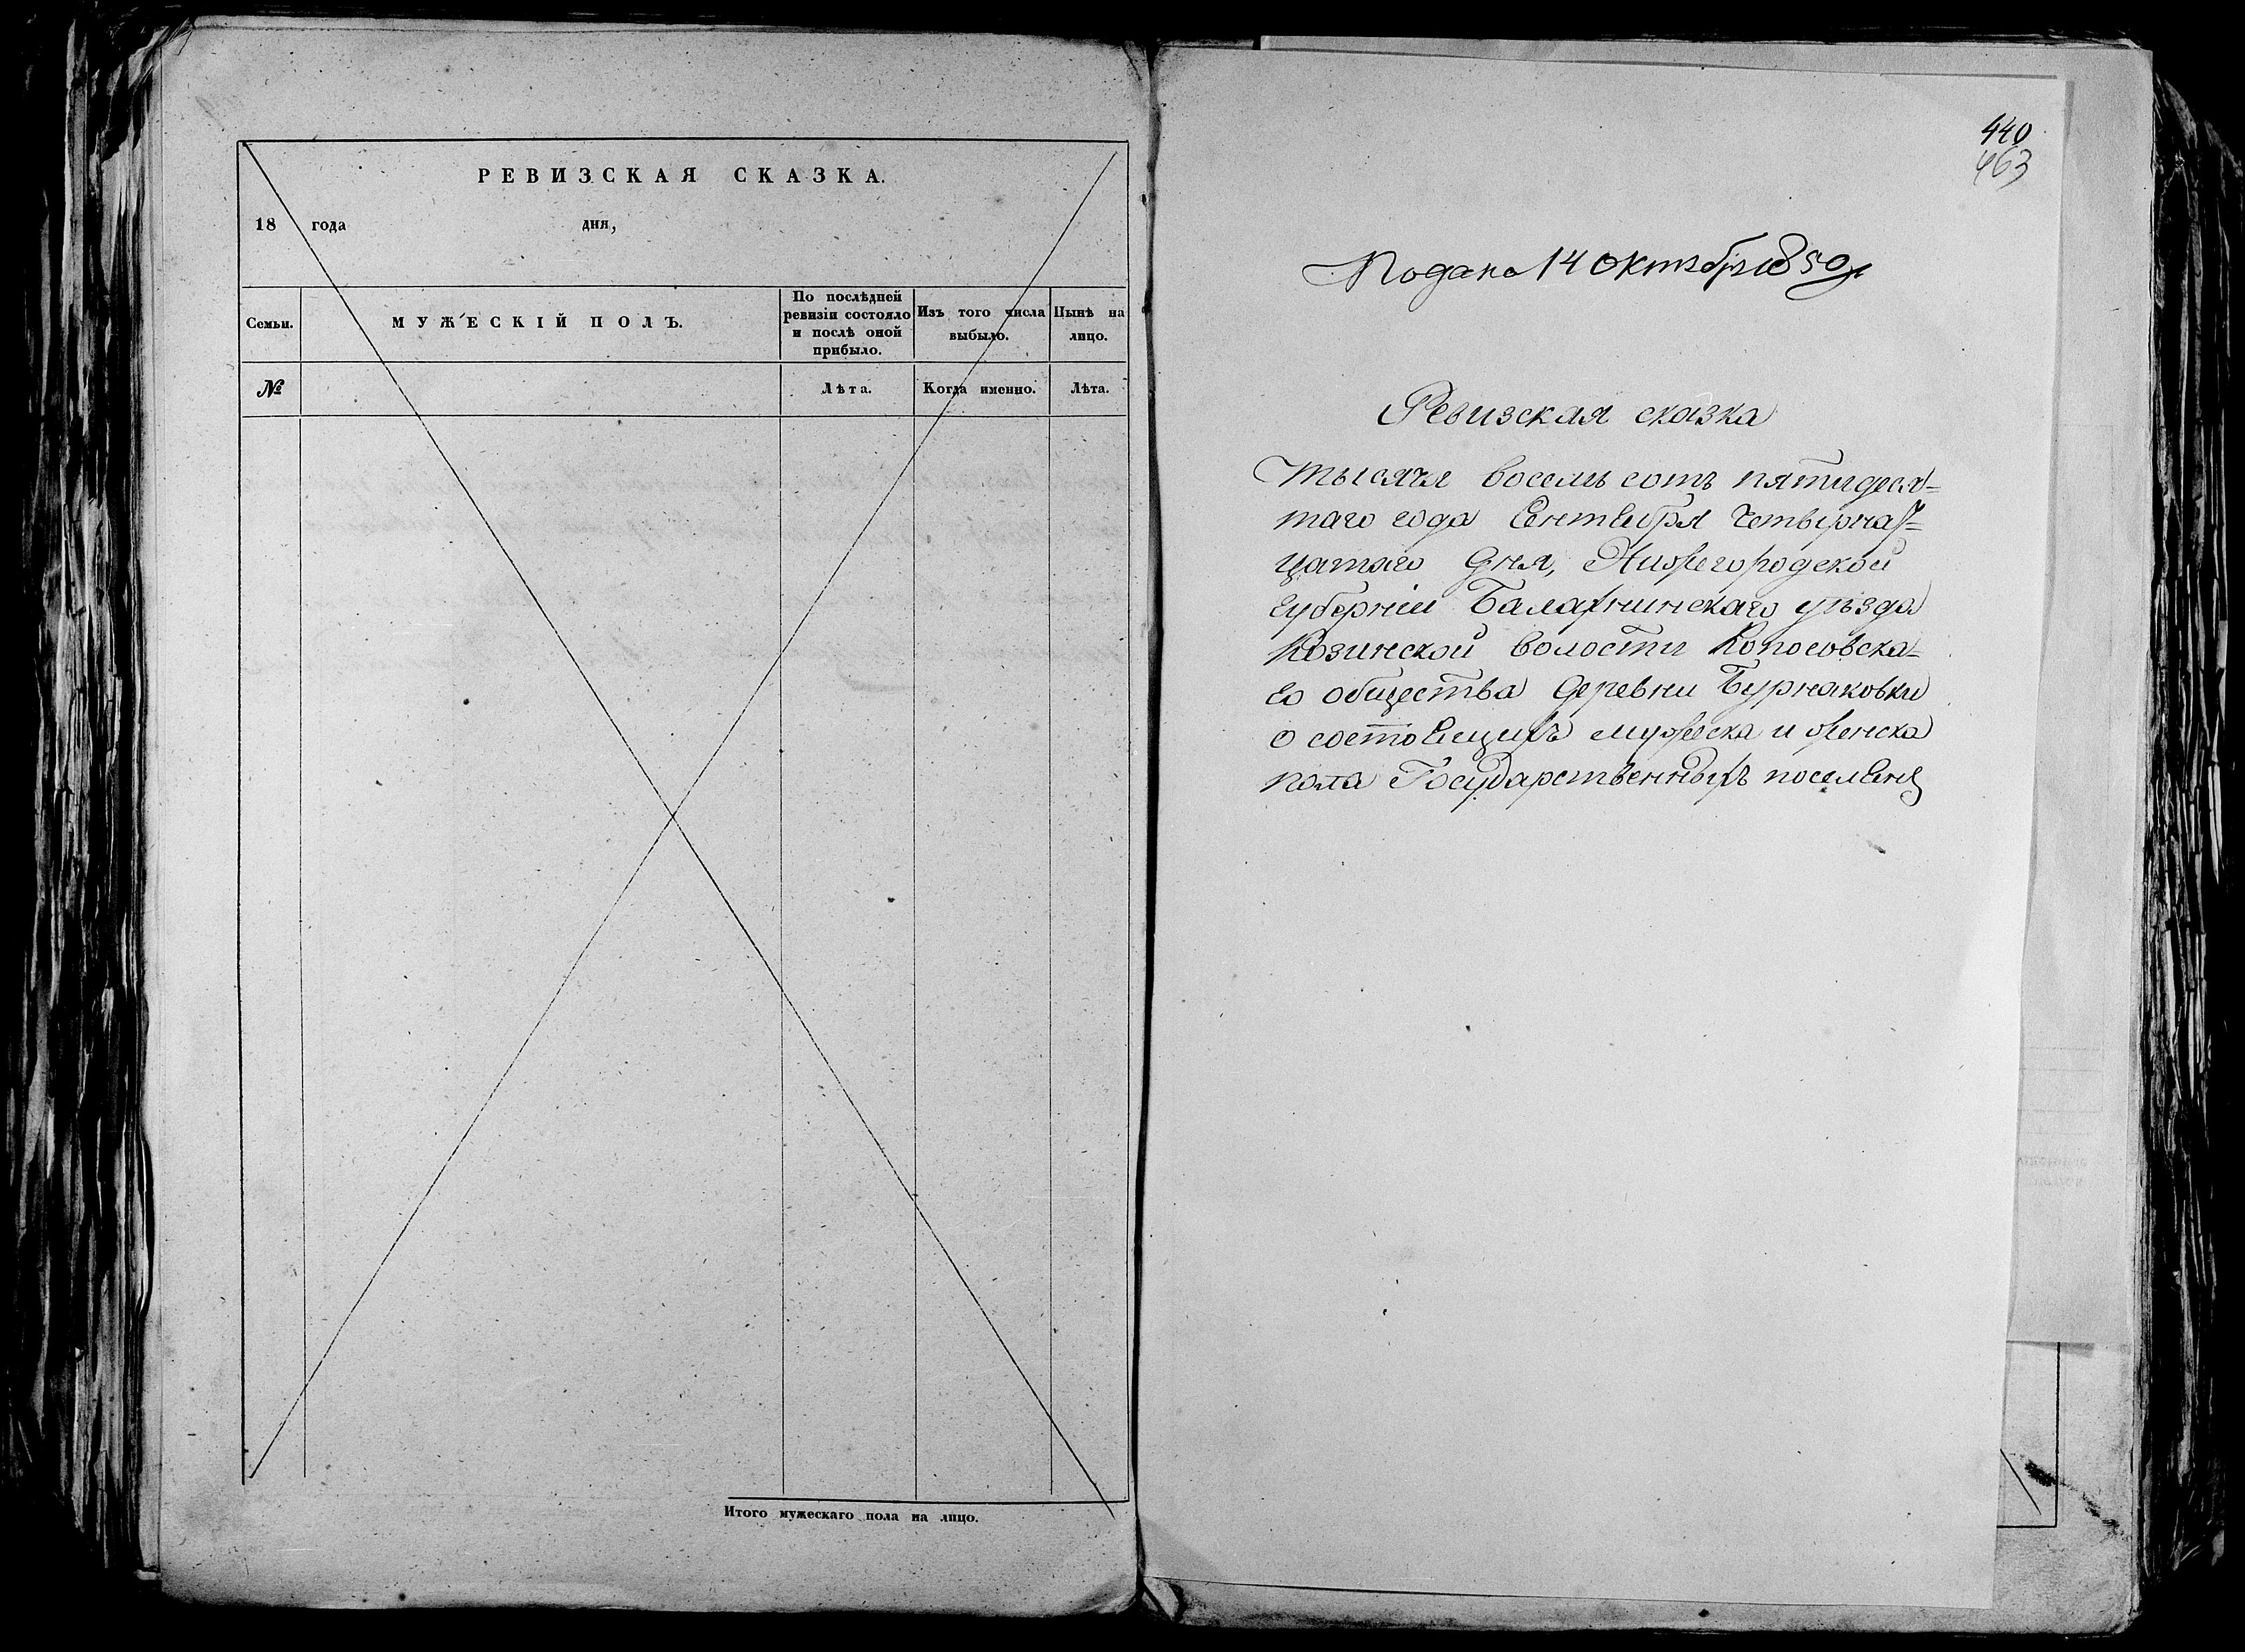 РЕВИЗСКАЯ СКАЗКА.
18 года дня,
Семьи.
МУЖЕСКІЙ ПОЛЪ.
По послѣдней
ревизіи состояло
и послѣ оной
прибыло.
Изъ того числа
выбыло.
Нынѣ на
лицо.
№
Лѣта.
Когда именно.
Лѣта.
Итого мужескаго пола на лицо.
440
463
Подано 14 октября 1850 г
Ревизская сказка
тысяча восемь сотъ пятидеся=
таго года Сентебря Четвырнад=
цатаго дня, Нижегородской
губерніи Балахнинскаго уѣзда
Козинской волости Копосовска=
го общества деревни Бурнаковки
о состоещихъ мужеска и женска
пола Государственныхъ поселенц